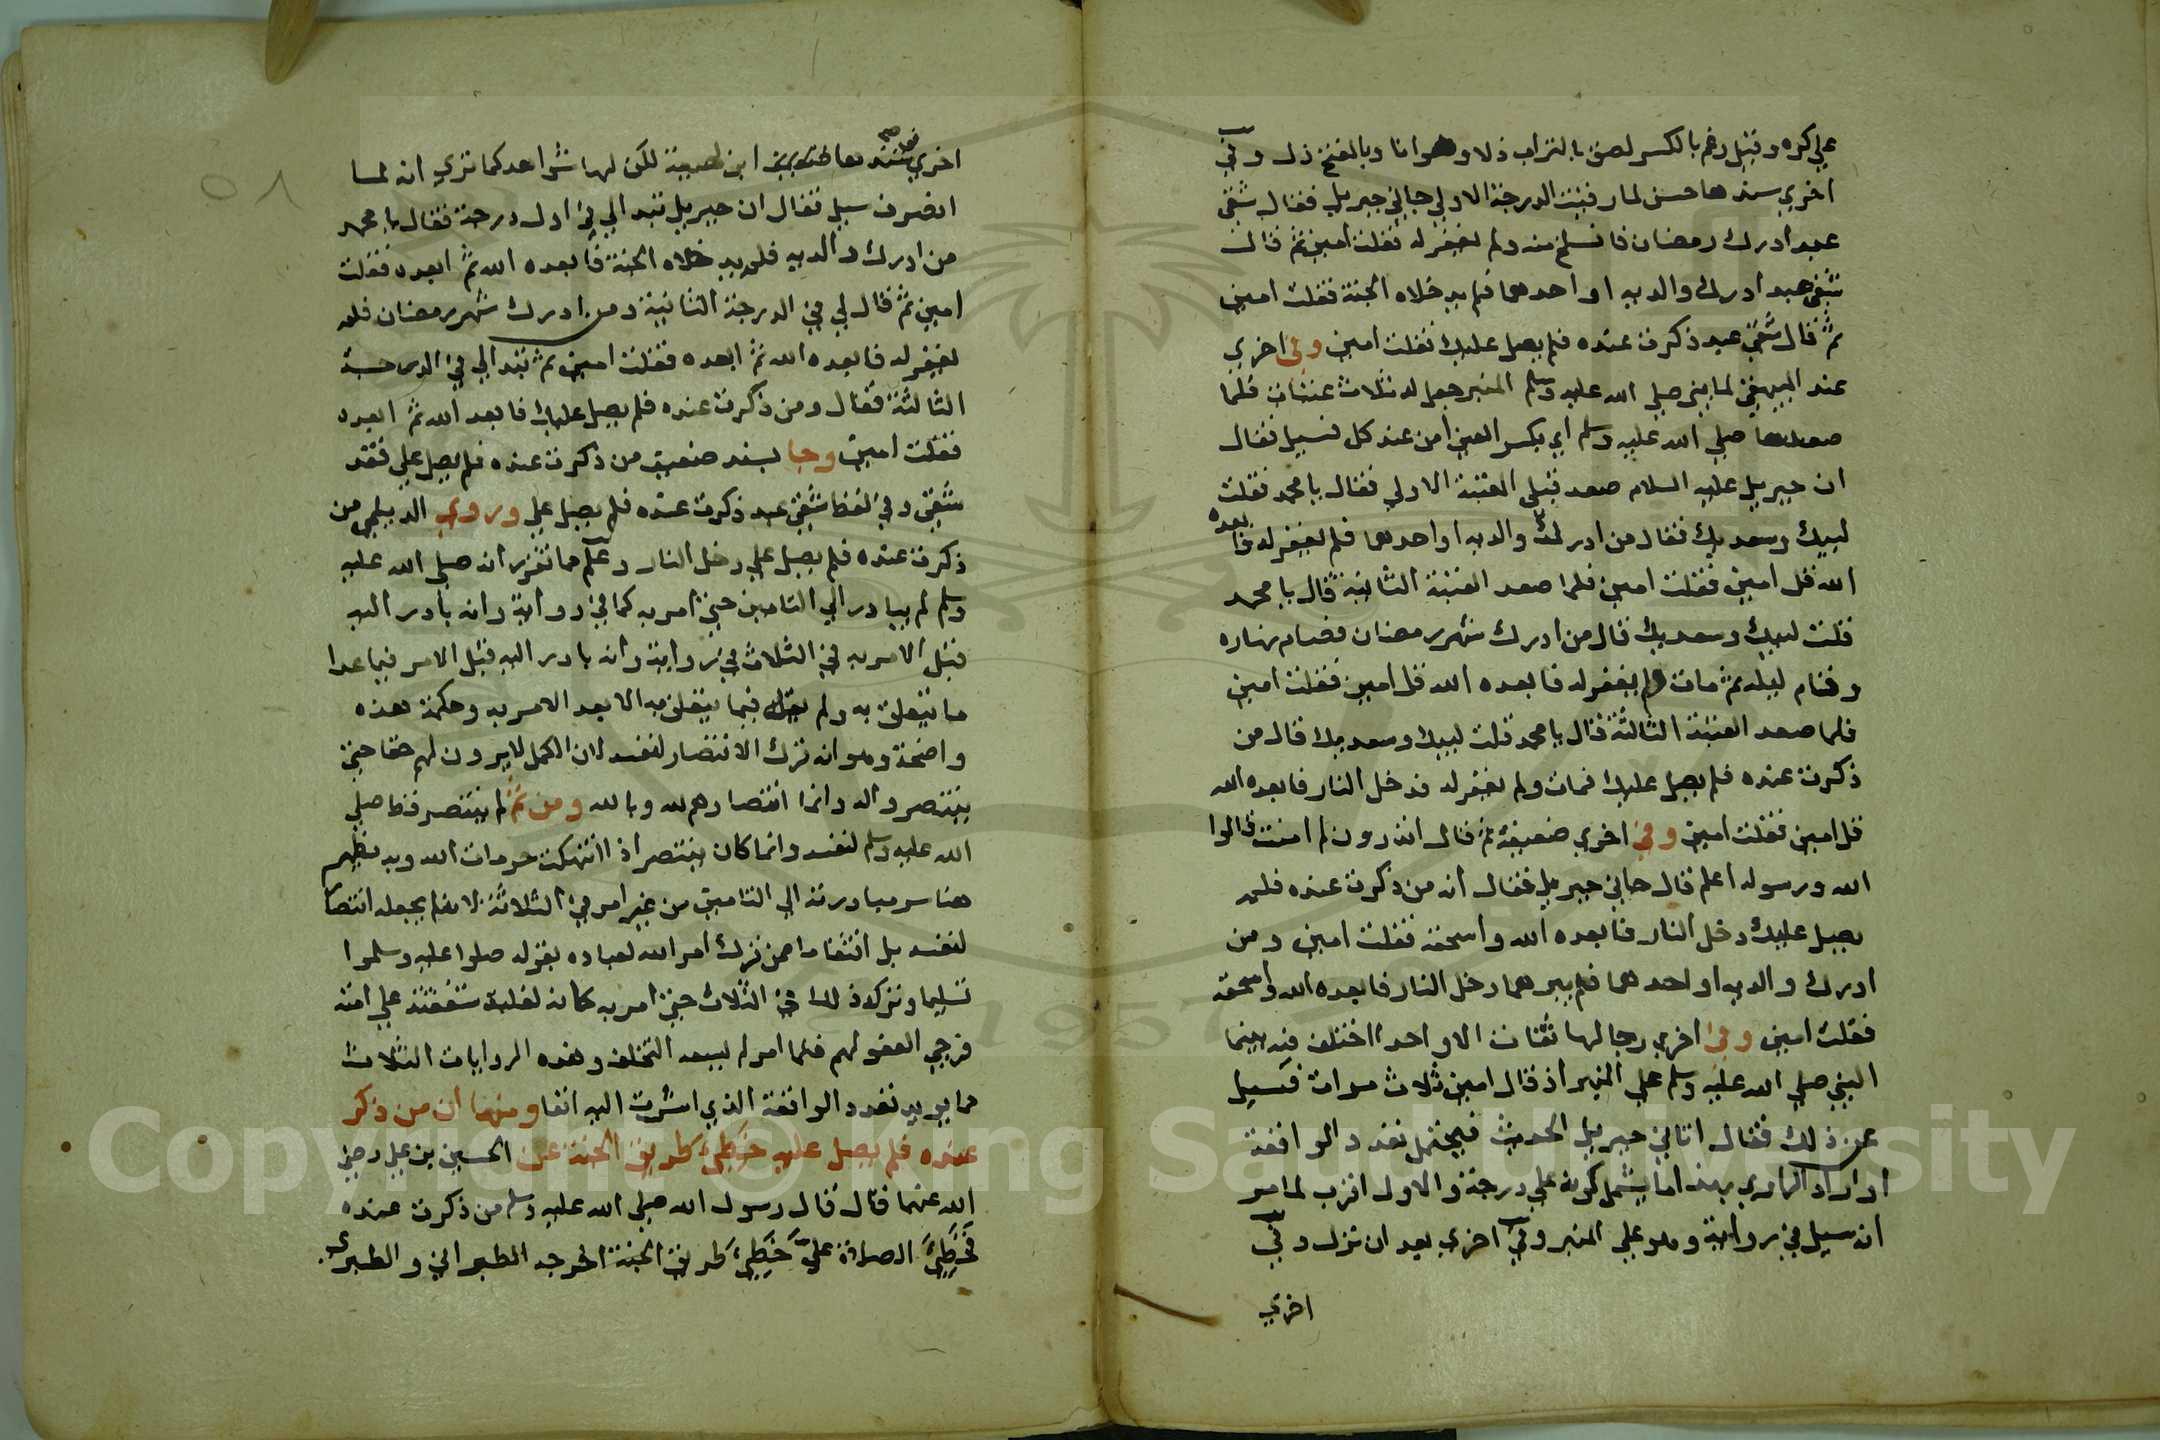 علي كره وقيل رغم بالكسر لصق بالتراب ذلا وهوانا وبالفتح ذل وفي
اخري سندها حسن لما رقيت الدرجة الاولي جاني جبريل فقال شقي
عبد ادرك رمضان فانسلخ منه ولم يغفر له فقلت امين ثم قال
شقي عبد ادرك والديه او احدهما فلم يدخلاه الجنة فقلت امين
ثم قال شقي عبد ذكرت عنده فلم يصل عليك فقلت امين وفي اخري
عند البيهقي لما بني صلي الله عليه وسلم المنبر جعل له ثلاث عتبات فلما
صعدها صلي الله عليه وسلم اي بكسر العين امن عند كل فسيل فقال
ان جبريل عليه السلام صعد قبلي العتبة الاولي فقال يا محمد فقلت
لبيك وسعديك فقال من ادرك والديه او احدهما فلم يغفر له فابعده
الله قل امين فقلت امين فلما صعد العتبة الثانية قال يا محمد
قلت لبيك وسعديك قال من ادرك شهر رمضان فصام نهاره
وقام ليله ثم مات ولم يغفر له فابعده الله قل امين فقلت امين
فلما صعد العتبة الثالثة قال يا محمد قلت لبيك وسعديك قال من
ذكرت عنده فلم يصل عليك فمات ولم يغفر له فدخل النار فابعده الله
قل امين فقلت امين وفي اخري ضعيفة ثم قال اتدرون لم امنت قالوا
الله ورسوله اعلم قال جاني جبريل فقال انه من ذكرت عنده فلم
يصل عليك دخل النار فابعده الله واسحقه فقلت امين ومن
ادرك والديه او احدهما فلم يبرهما دخل النار فابعده الله واسحقه
فقلت امين وفي اخري رجالها ثقات الا واحدا اختلف فيه بينما
النبي صلي الله عليه وسلم علي المنبر اذ قال امين ثلاث مرات فسيل
عن ذلك فقال اتاني جبريل الحديث فيحتمل تعدد الواقعة
او اراد الراوي بهذا ما يشمل كونه علي درجة والاول اقرب لما مر
انه سيل في رواية وهو علي المنبر وفي اخري بعد ان نزل وفي
اخري
٥٨
اخري في سندها ابن لهيعة لكن لها شواهد كما تري انه لما
انصرف سيل فقال ان جبريل تبد الي في اول درجة فقال يا محمد
من ادرك والديه فلم يدخلاه الجنة فابعده الله ثم ابعده فقلت
امين ثم قال لي في الدرجة الثانية ومن ادرك شهر رمضان فلم
يغفر له فابعده الله ثم ابعده فقلت امين ثم تبد الي في الدرجة
الثالثة فقال ومن ذكرت عنده فلم يصل عليك فابعد الله ثم ابعده
فقلت امين وجا بسند ضعيف من ذكرت عنده فلم يصل علي فقد
شقي وفي لفظ شقي عبد ذكرت عنده فلم يصل علي وروي الديلمي من
ذكرت عنده فلم يصل علي دخل النار وعلم مما تقرر انه صلي الله عليه
وسلم لم يبادر الي التامين حتي امر به كما في رواية وانه بادر اليه
قبل الامر به في الثلاث في رواية وانه بادر اليه قبل الامر فيما عدا
ما يتعلق به ولم يقله فيما يتعلق به الا بعد الامر به وحكمة هذه
واضحة وهو انه ترك الانتصار لنفسه لان الكمل لا يرون لهم حقا حتي
ينتصروا له وانما انتصارهم لله وبالله ومن ثم لم ينتصر قط صلي
الله عليه وسلم لنفسه وانما كان ينتصر اذا انتهكت حرمات الله وبه يظهر
هنا سر مبادرته الي التامين من غير امر في الثلاثة لانه لم يجعله انتصارا
لنفسه بل انتقاما ممن ترك امر الله لعباده بقوله صلوا عليه وسلموا
تسليما وتركه ذلك في الثلاث حتي امر به كانه لغلبة شفقته علي امته
فرجي العفو لهم فلما امر لم يسعه التخلف وهذه الروايات الثلاث
مما يويد تعدد الواقعة الذي اشرت اليه انفا ومنها ان من ذكر
عنده فلم يصل عليه خطي طريق الجنة عن الحسين بن علي رضي
الله عنهما قال قال رسول الله صلي الله عليه وسلم من ذكرت عنده
فخطي الصلاة علي خطي طريق الجنة اخرجه الطبراني والطبري
Copyright © King Saud University
1957